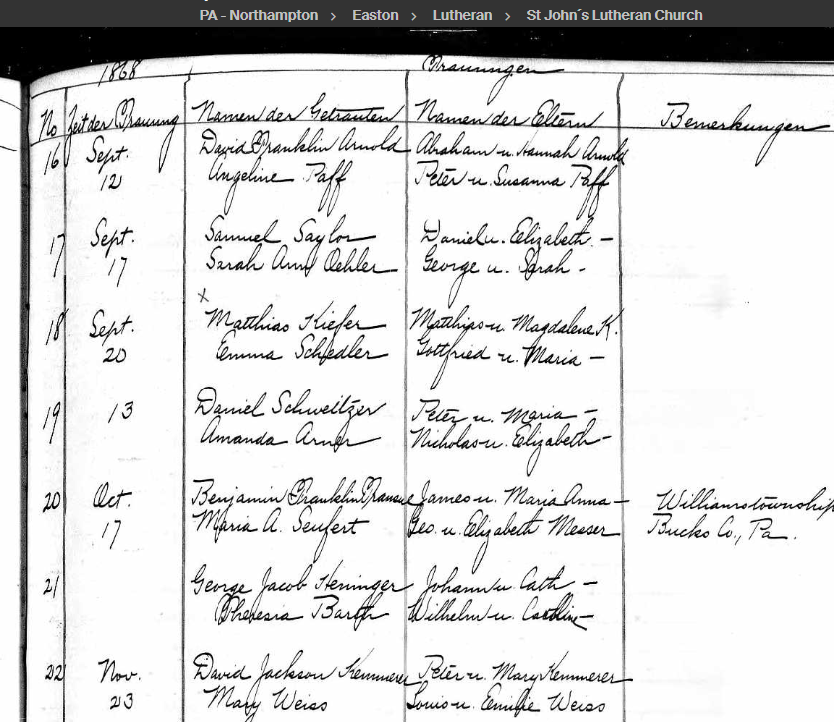 PA - Northampton > Easton > Lutheran > St John´s Lutheran Church
1868 Trauungen
No Zeit der Trauung Namen der Getrauten Namen der Eltern Bemerkungen
16 Sept. David Franklin Arnold Abraham u. Hannah Arnold
12 Angeline Paff Peter u. Susanna Paff
17 Sept. Samuel Saylor Daniel u. Elizabeth -
17 Sarah Ann Oehler George u. Sarah -
x
18 Sept. Matthias Kiefer Matthias u. Magdalene K.
20 Emma Schedler Gottfried u. Maria -
19 13 Daniel Schweitzer Peter u. Maria -
Amanda Arner Nicholas u. Elizabeth -
20 Oct. Benjamin Franklin Transue James u. Maria Anna - Williamstownship
17 Maria A. Seufert Geo. u. Elizabeth Messer Bucks Co., Pa.
21 George Jacob Heninger Johann u. Cath -
Theresia Barth Wilhelm u. -
22 Nov. David Jackson Kemmerer Peter u. Mary Kemmerer
23 Mary Weiss Louis u. Emilie Weiss